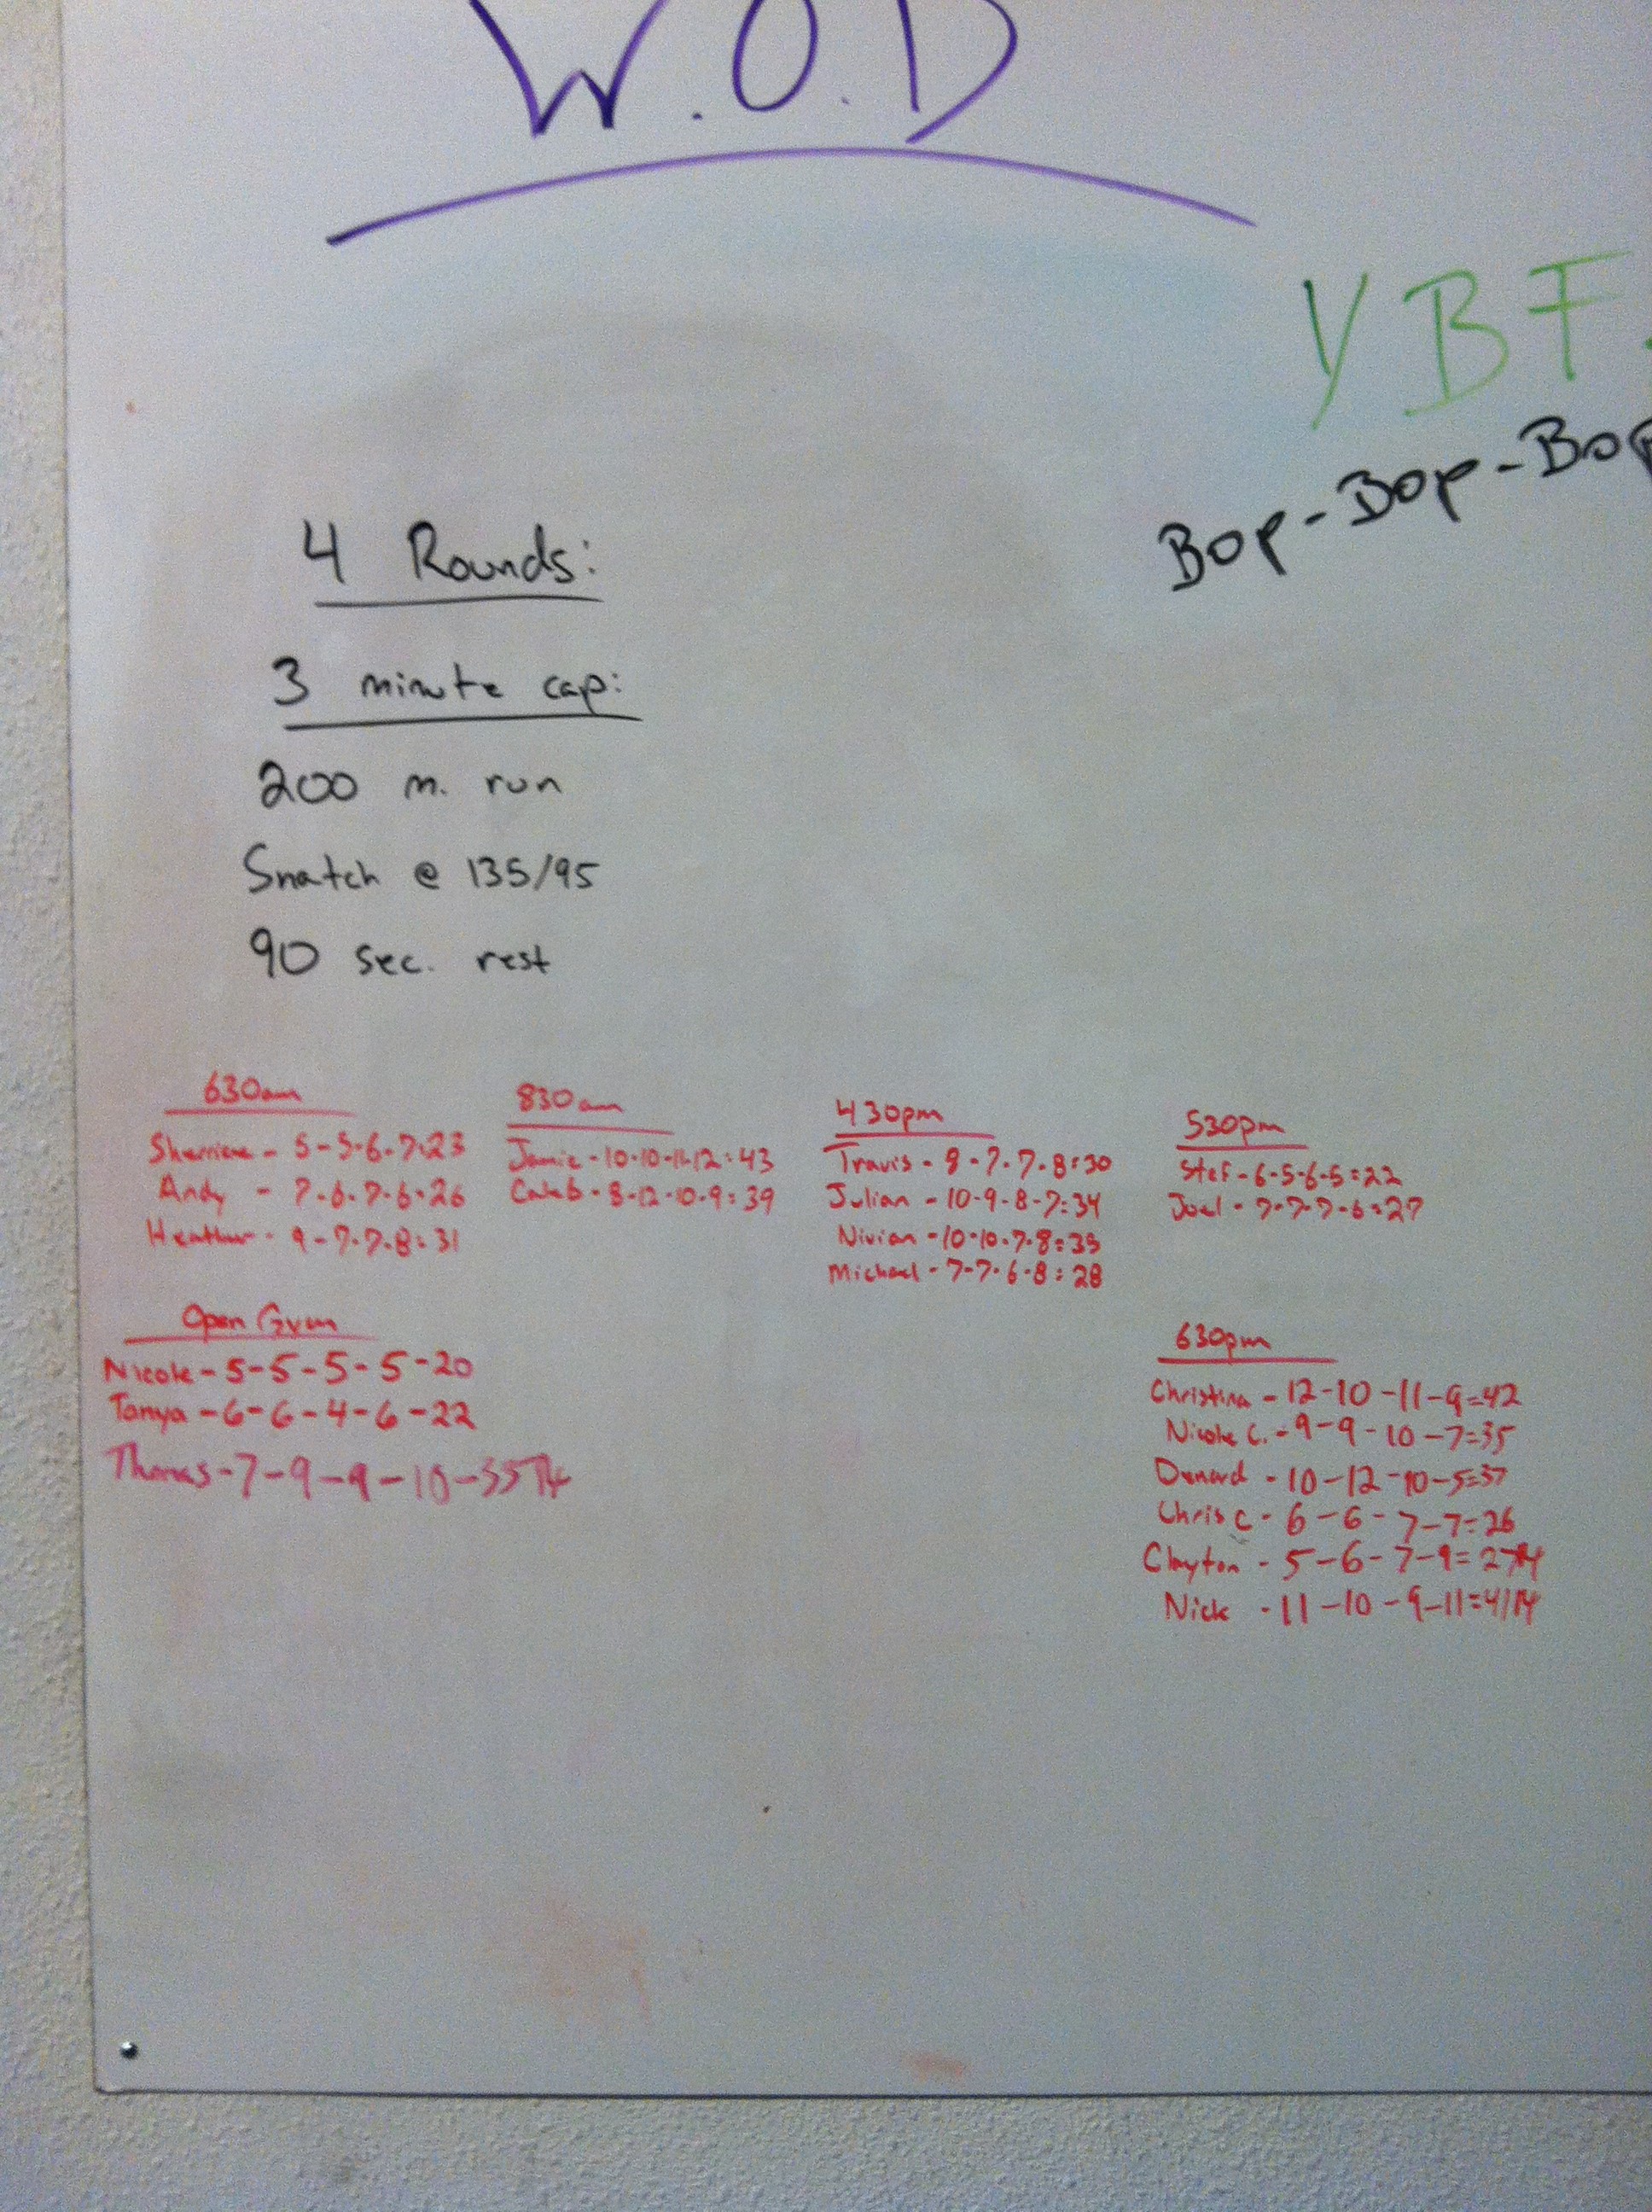 W.O.D
YBF.
Bop-Bop-Bop
4 Rounds:
3 minute cap:
200 m. run
Snatch @ 135/95
90 sec. rest
630am
Sherriene - 5-5-6-7-23
Andy - 7-6-7-6-26
Heather - 9-7-7-8=31
830am
Jamie-10-10-11-12=43
Caleb-8-12-10-9=39
430pm
Travis-8-7-7-8=30
Julian-10-9-8-7=34
Nivian-10-10-7-8=35
Michael-7-7-6-8=28
530pm
Stef-6-5-6-5=22
Joel-7-7-7-6=27
Open Gym
Nicole-5-5-5-5-20
Tanya-6-6-4-6-22
Thomas-7-9-9-10-35
630pm
Christina-12-10-11-9=42
Nicole C.-9-9-10-7=35
Denard-10-12-10-5=37
Chris C-6-6-7-7=26
Clayton-5-6-7-9=27
Nick-11-10-9-11=41